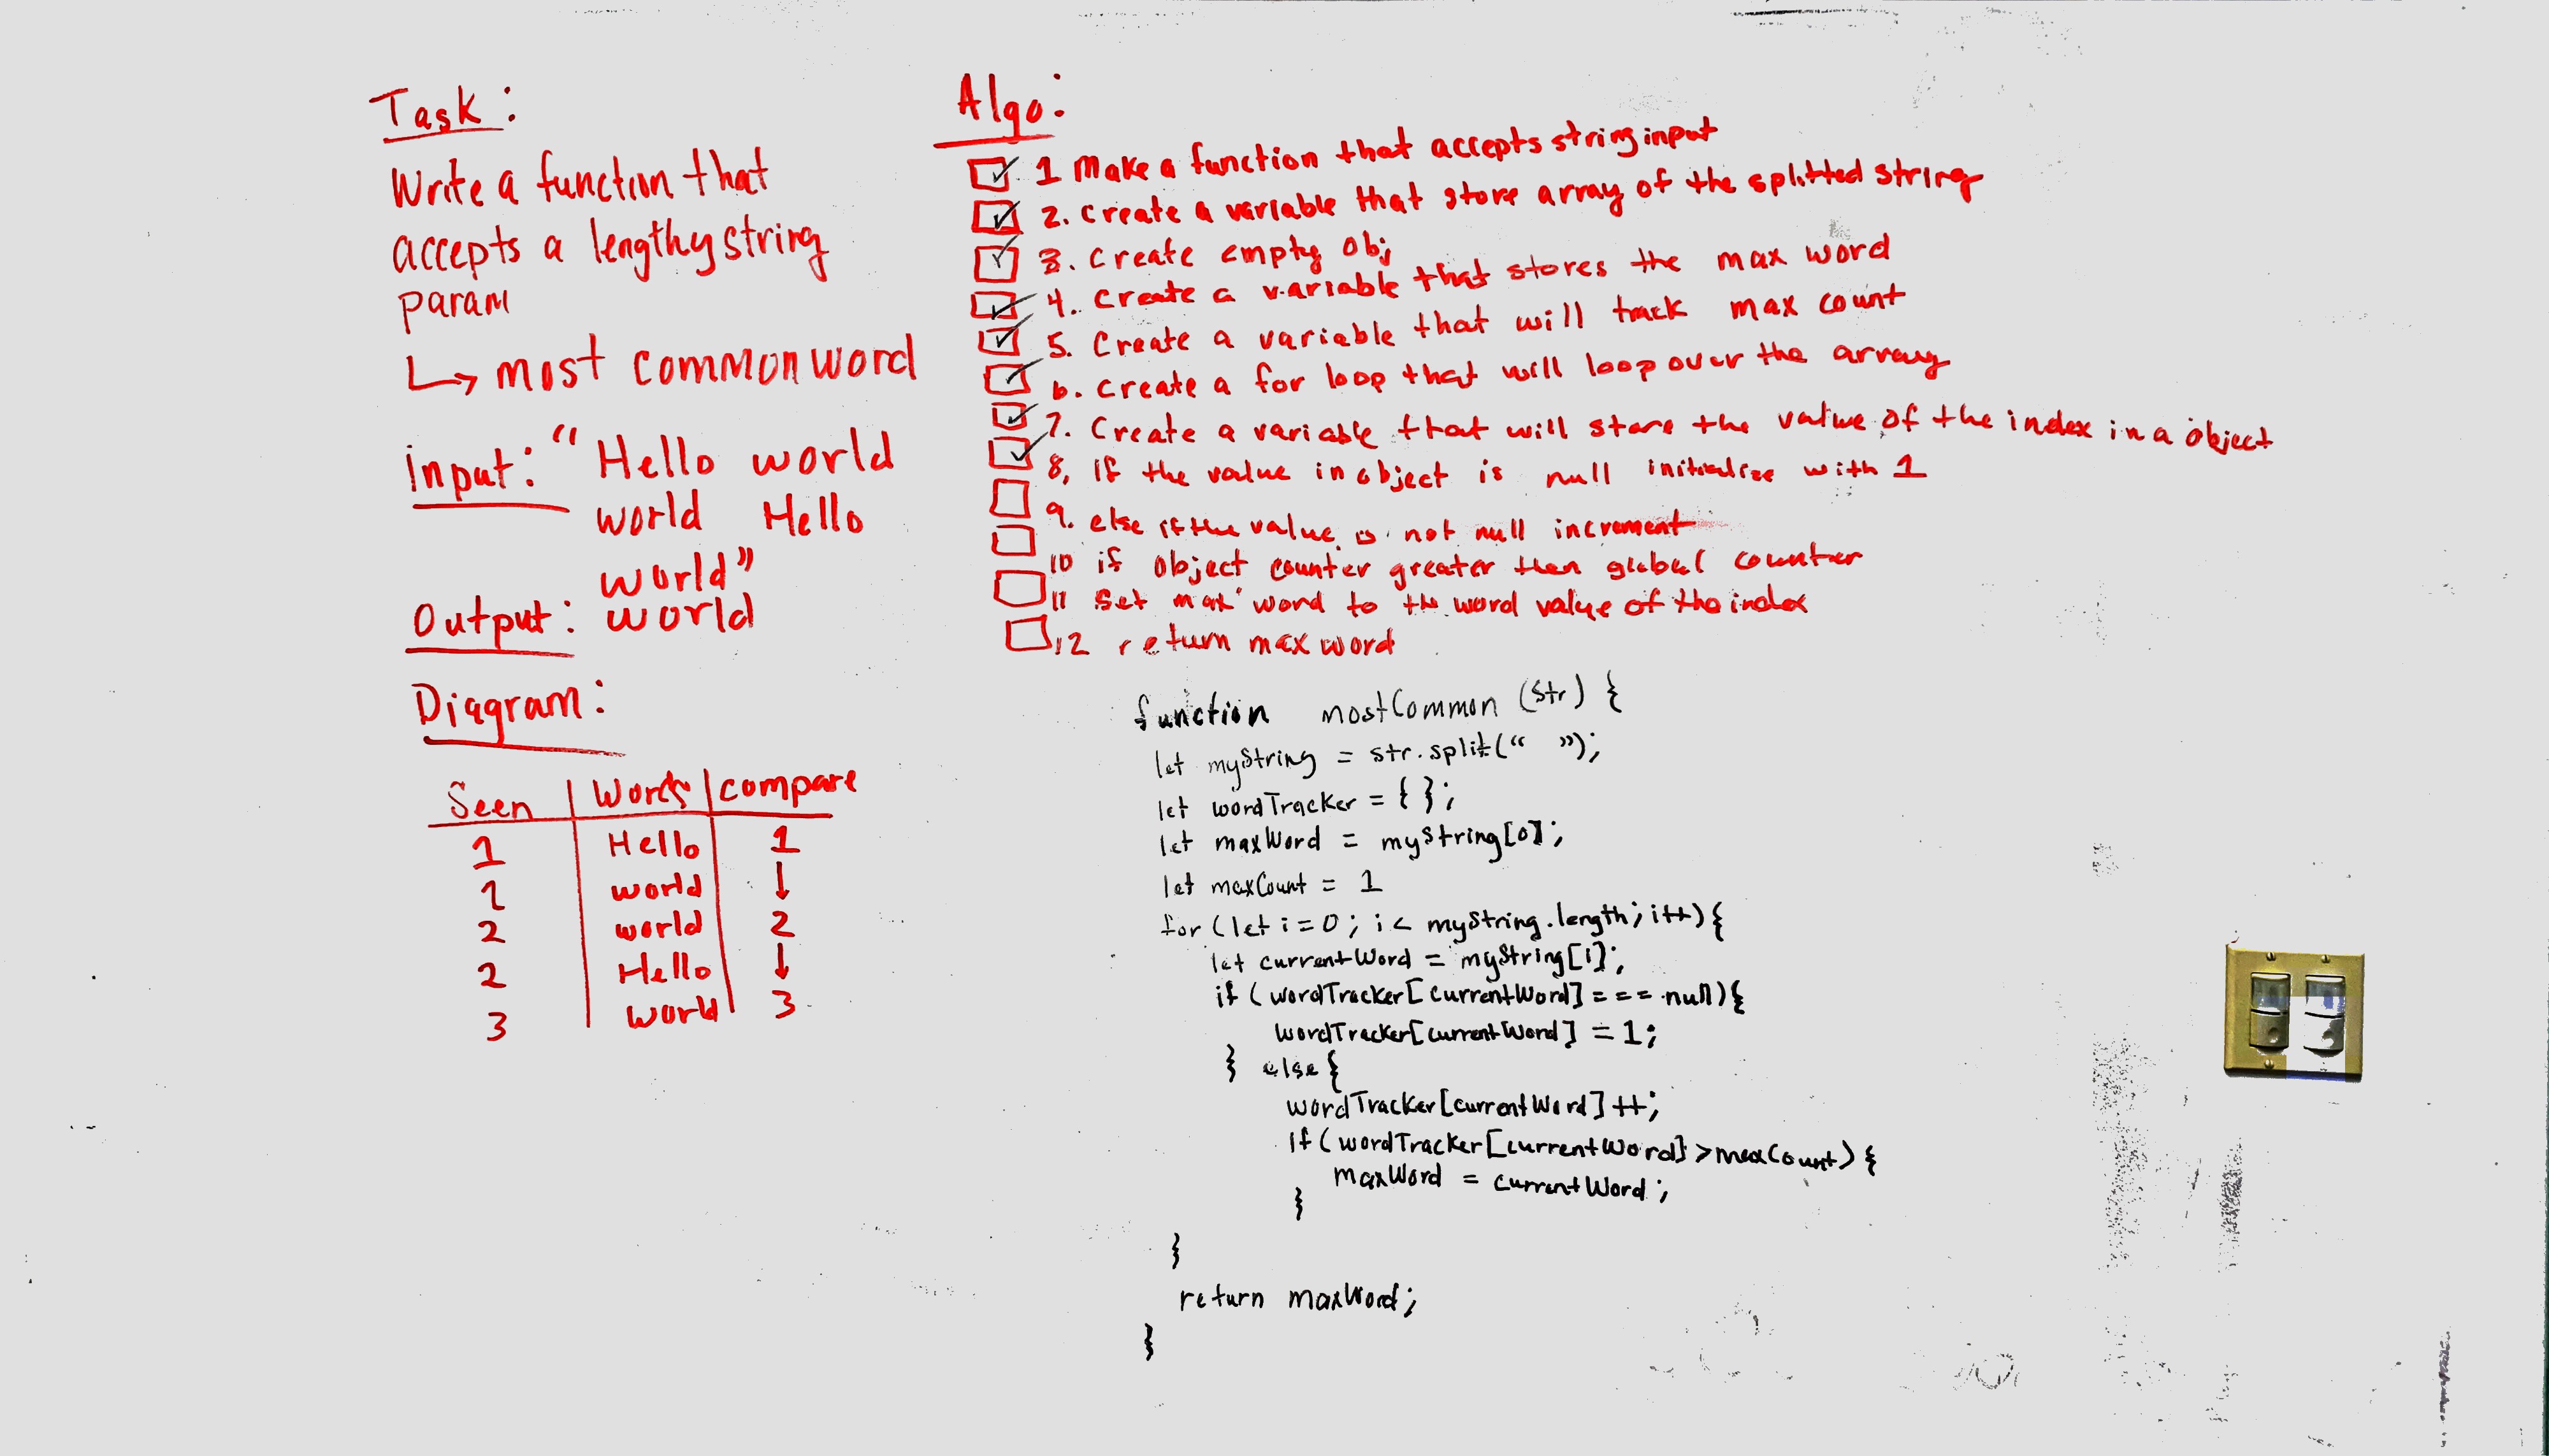 Task:
Write a function that
accepts a lengthy string
param
↳ most common word
input: "Hello world
world Hello
world"
Output: world
Diagram:
Seen | Words | compare
1 Hello 1
1 world ↓
2 world 2
2 Hello ↓
3 world 3
Algo:
1 Make a function that accepts string input
2. Create a variable that store array of the splitted string
3. Create empty Obj
4. Create a variable that stores the max word
5. Create a variable that will track max count
6. Create a for loop that will loop over the array
7. Create a variable that will store the value of the index in a object
8, If the value in object is null initialize with 1
9. else if the value is not null increment
10 if Object counter greater then global counter
11 Set max word to the word value of the index
12 return max word
function mostCommon (str) {
let myString = str.split(" ");
let wordTracker = { };
let maxWord = myString[0];
let maxCount = 1
for (let i = 0; i < myString.length; i++){
let currentWord = myString[i];
if (wordTracker[currentWord] === null){
wordTracker[currentWord] = 1;
} else {
wordTracker[currentWord]++;
if (wordTracker[currentWord] > maxCount) {
maxWord = currentWord;
}
}
return maxWord;
}